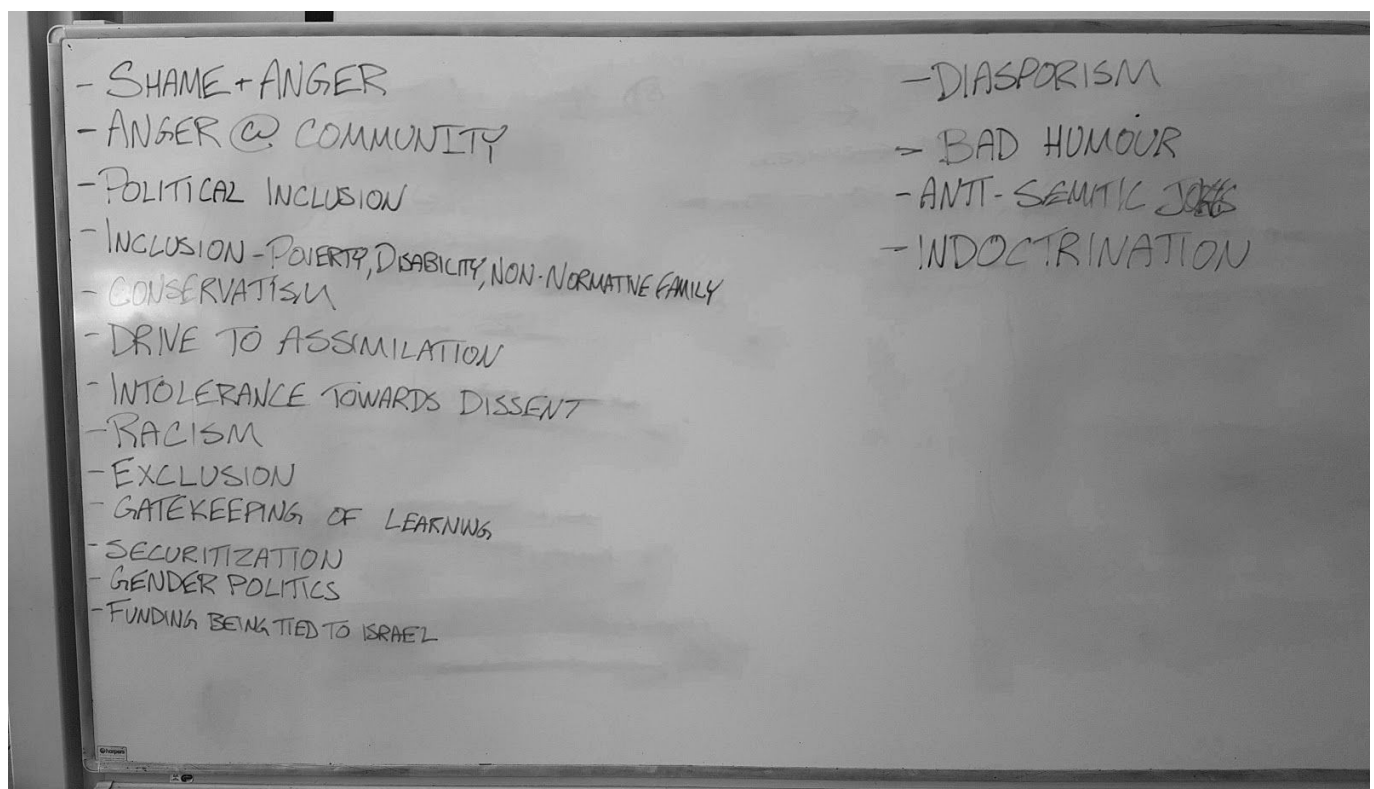 - SHAME + ANGER
- ANGER @ COMMUNITY
- POLITICAL INCLUSION
- INCLUSION - POVERTY, DISABILITY, NON-NORMATIVE FAMILY
- CONSERVATISM
- DRIVE TO ASSIMILATION
- INTOLERANCE TOWARDS DISSENT
- RACISM
- EXCLUSION
- GATEKEEPING OF LEARNING
- SECURITIZATION
- GENDER POLITICS
- FUNDING BEING TIED TO ISRAEL
- DIASPORISM
- BAD HUMOUR
- ANTI-SEMITIC JOKES
- INDOCTRINATION